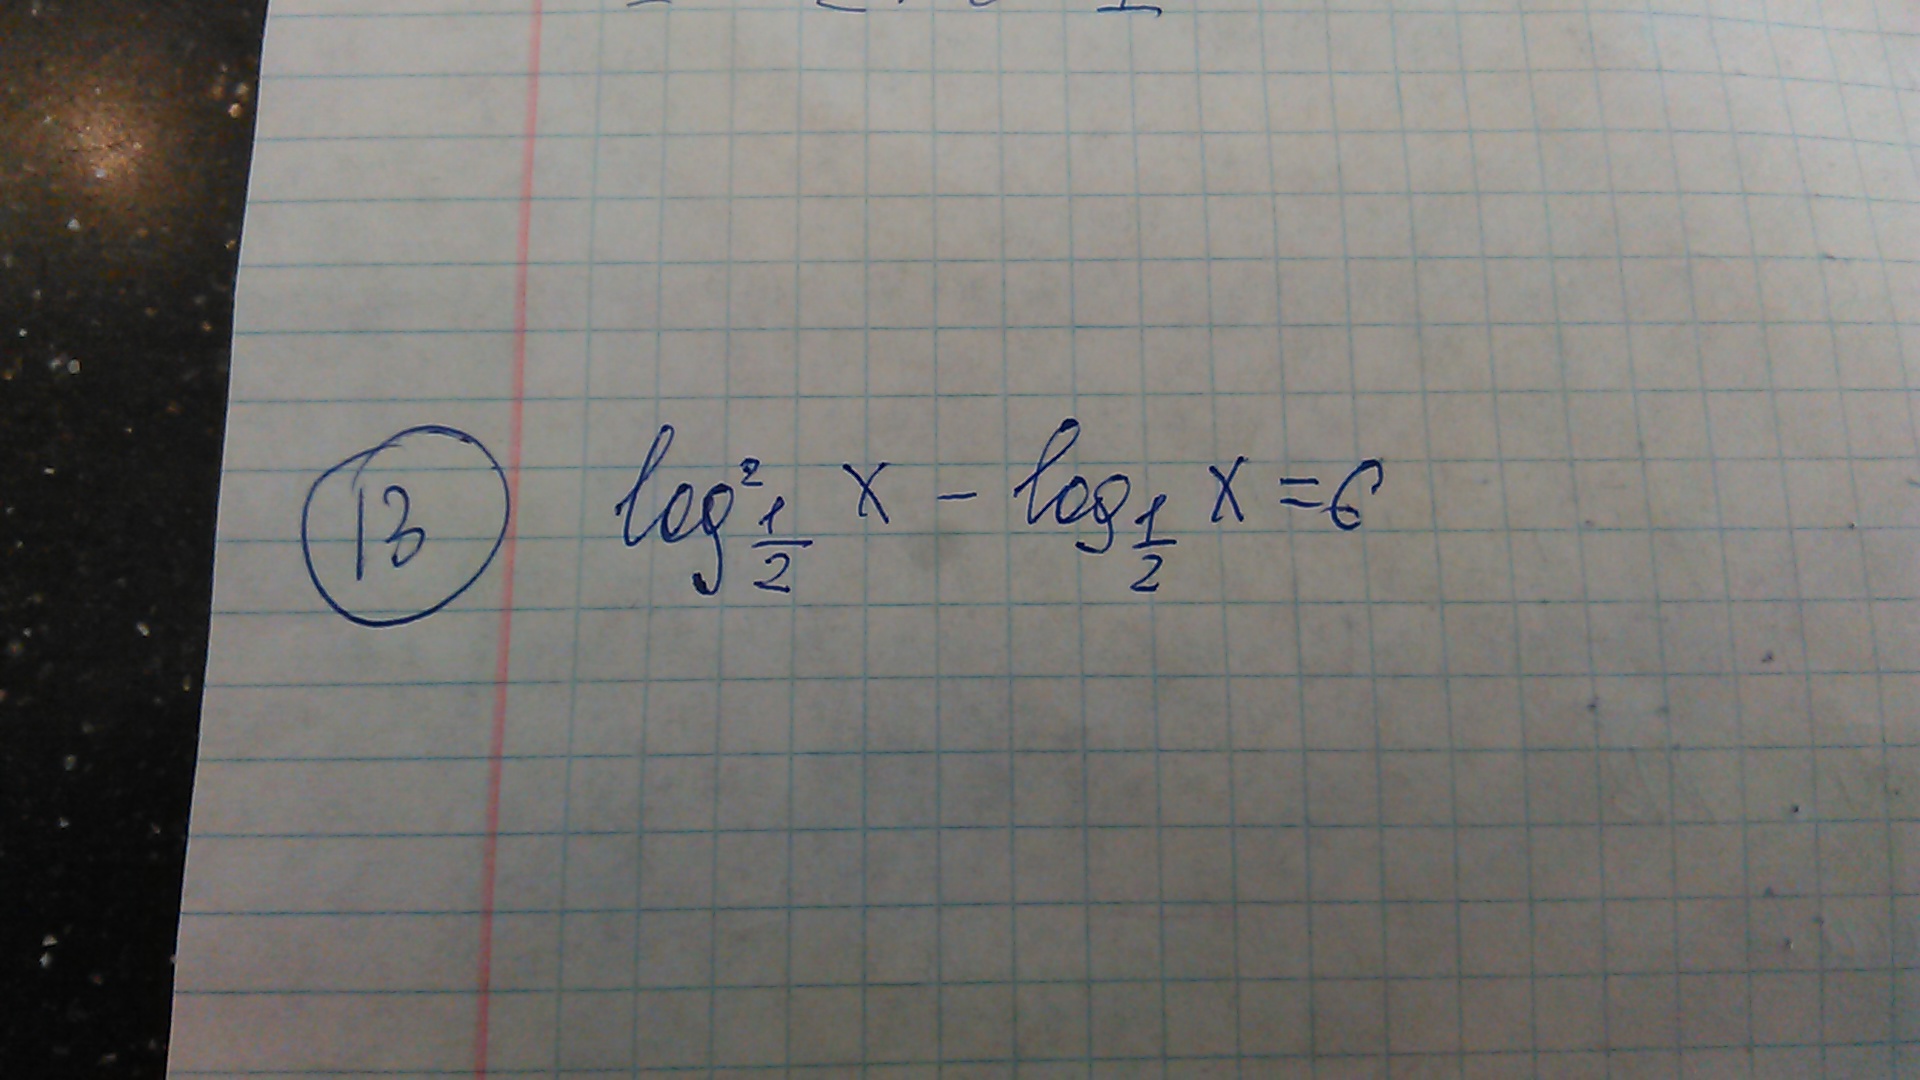 13 log²_{1/2} x - log_{1/2} x = 6